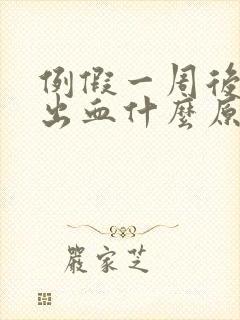 例假一周後
出血什麼原
嚴家芝